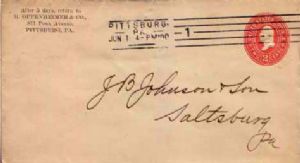 After 5 days, return to
M. OPPENHEIMER & CO.,
811 Penn Avenue
PITTSBURG, PA.
PITTSBURG,
PA.
JUN 1 4-PM
1
J B Johnson & Son
Saltsburg
Pa